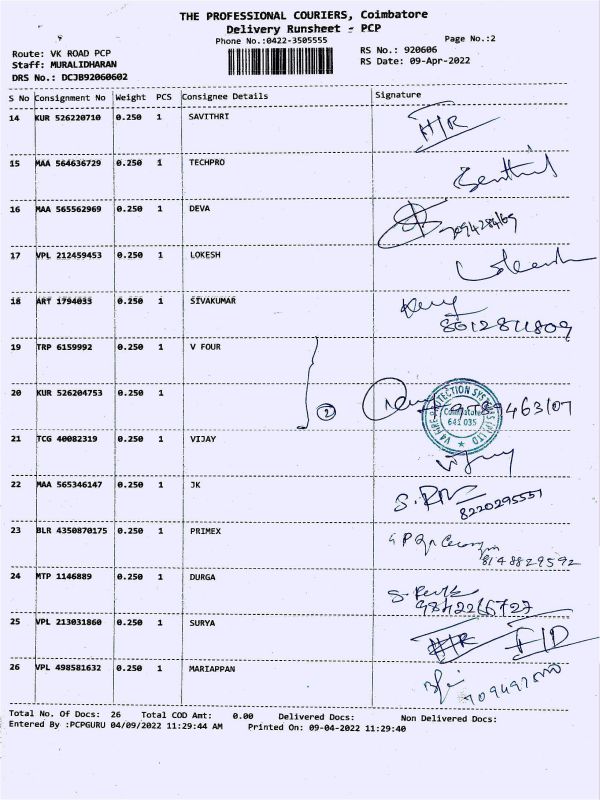 THE PROFESSIONAL COURIERS, Coimbatore
Delivery Runsheet - PCP
Phone No.:0422-3505555
Page No.:2
Route: VK ROAD PCP
Staff: MURALIDHARAN
DRS No.: DCJB92060602
RS No.: 920606
RS Date: 09-Apr-2022
S No Consignment No Weight PCS Consignee Details Signature
14 KUR 526220710 0.250 1 SAVITHRI
15 MAA 564636729 0.250 1 TECHPRO
16 MAA 565562969 0.250 1 DEVA
17 VPL 212459453 0.250 1 LOKESH
18 ART 1794033 0.250 1 SIVAKUMAR
19 TRP 6159992 0.250 1 V FOUR
20 KUR 526204753 0.250 1
2
Coimbatore
641 035
21 TCG 40082319 0.250 1 VIJAY
22 MAA 565346147 0.250 1 JK
8220295551
23 BLR 4350870175 0.250 1 PRIMEX
8148829592
24 MTP 1146889 0.250 1 DURGA
25 VPL 213031860 0.250 1 SURYA
26 VPL 498581632 0.250 1 MARIAPPAN
Total No. Of Docs: 26 Total COD Amt: 0.00 Delivered Docs: Non Delivered Docs:
Entered By :PCPGURU 04/09/2022 11:29:44 AM Printed On: 09-04-2022 11:29:40